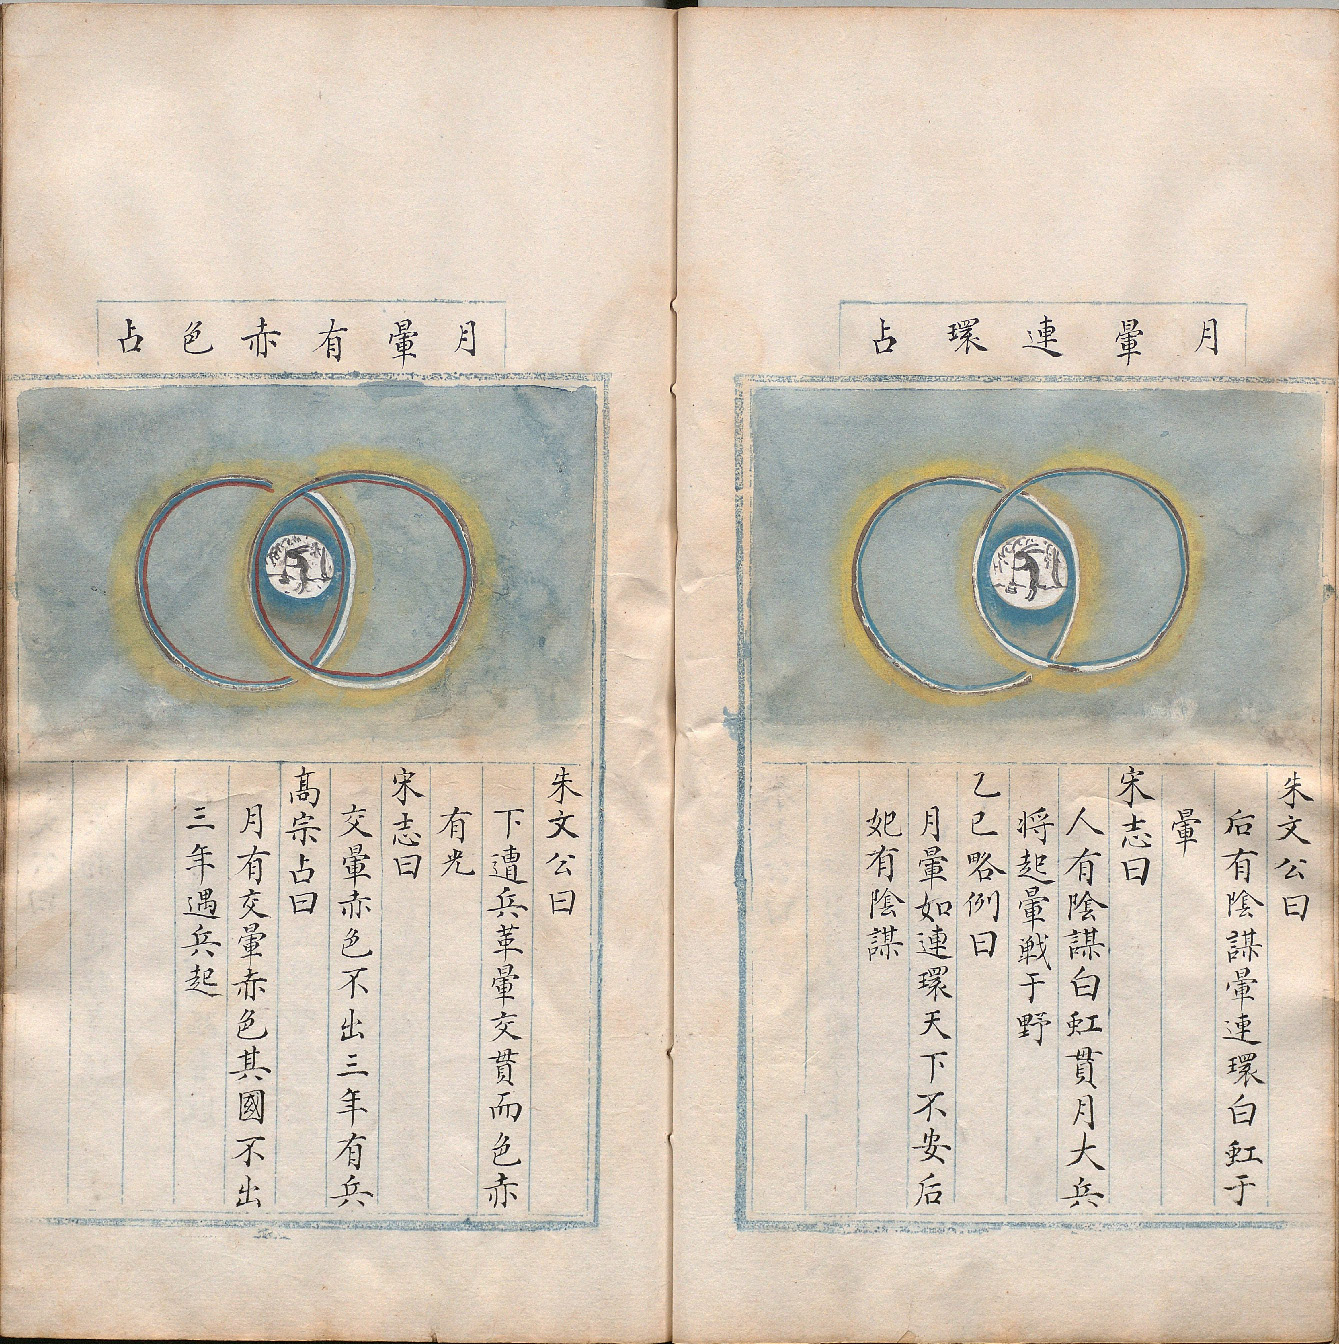 月暈連環占
朱文公曰
后有陰謀暈連環白虹于
暈
宋志曰
人有陰謀白虹貫月大兵
将起暈戦于野
乙巳略例曰
月暈如連環天下不安后
妃有陰謀
月暈有赤色占
朱文公曰
下遭兵革暈交貫而色赤
有光
宋志曰
交暈赤色不出三年有兵
髙宗占曰
月有交暈赤色其國不出
三年遇兵起